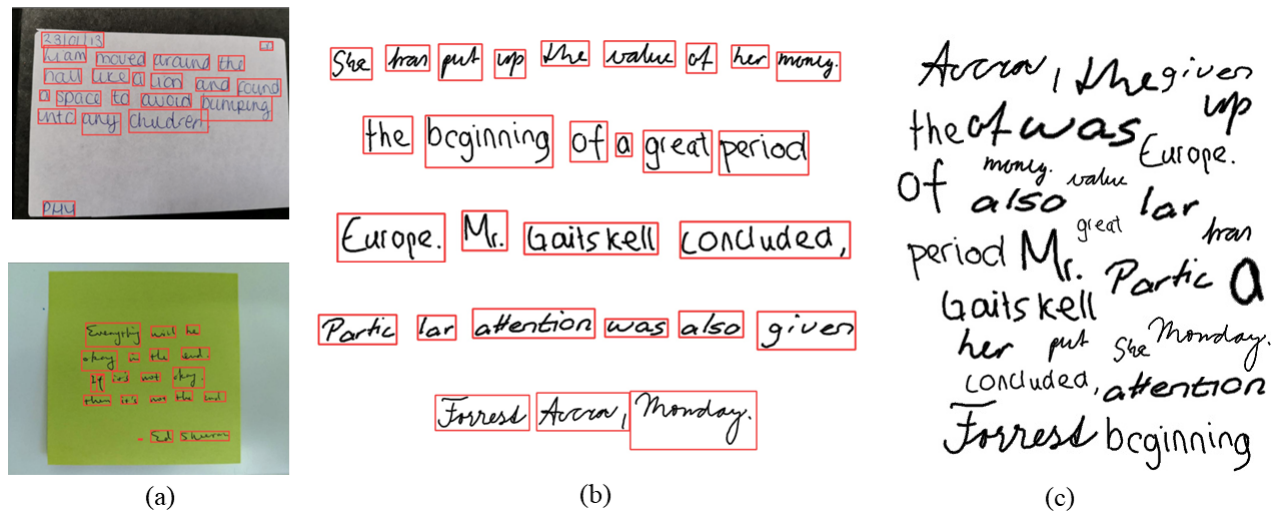 23/01/13
Liam moved around the
hall like a lion and found
a space to avoid bumping
into any children
Everything will be
okay in the end.
If it's not okay.
then it's not the end
- Ed Sheeran
(a)
She has put up the value of her money.
the beginning of a great period
Europe. Mr. Gaitskell concluded,
Partic lar attention was also given
Forrest Accra, Monday.
(b)
Accra, the given
up
the of was
Europe.
money. value
of also lar
great
has
period Mr. Partic a
Gaitskell
her put She Monday.
concluded, attention
Forrest beginning
(c)